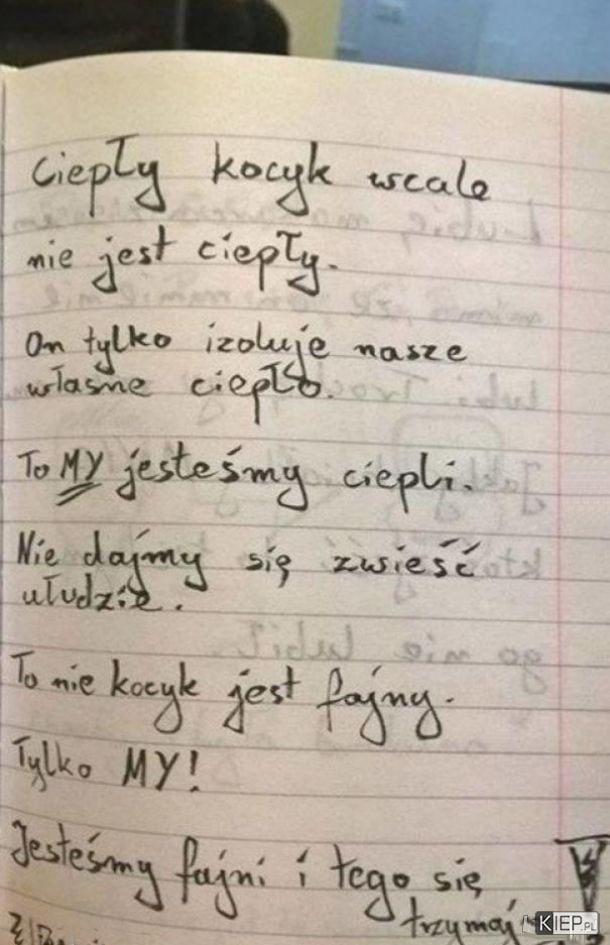 Ciepły kocyk wcale
nie jest ciepły.
On tylko izoluje nasze
własne ciepło.
To MY jesteśmy ciepli.
Nie dajmy się zwieść
ułudzie.
To nie kocyk jest fajny.
Tylko MY!
Jesteśmy fajni i tego się
KIEP.PL